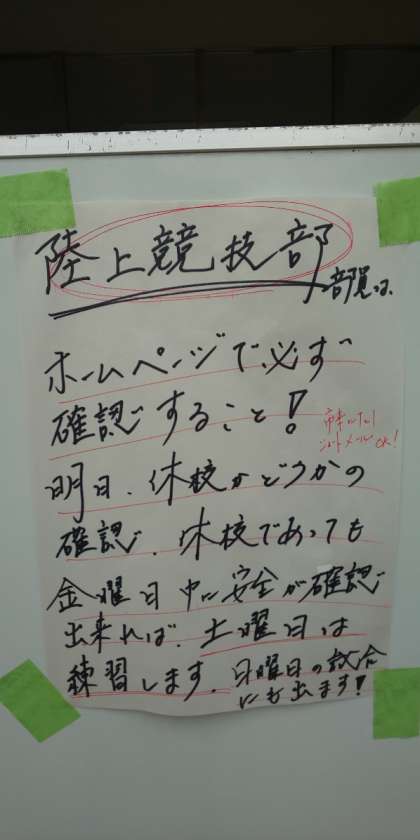 陸上競技部
部員は、
ホームページで必ず
確認すること!
ショートメールOK!
明日、休校かどうかの
確認、休校であっても
金曜日中に安全が確認
出来れば、土曜日は
練習します。日曜日の試合
にも出ます!